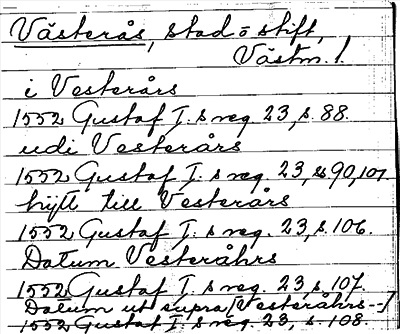 Västerås, stad o stift,
Västm. l.
i Vesterårs
1552 Gustaf I: s reg. 23, s. 88.
udi Vesterårs
1552 Gustaf I: s reg. 23, ss 90, 101
till Vesterårs
1552 Gustaf I: s reg. 23, s. 106.
Datum Vesteråhrs
1552 Gustaf I: s reg. 23, s. 107.
Datum ut supra [Vesteråhrs --]
1552 Gustaf I: s reg. 23, s. 108.